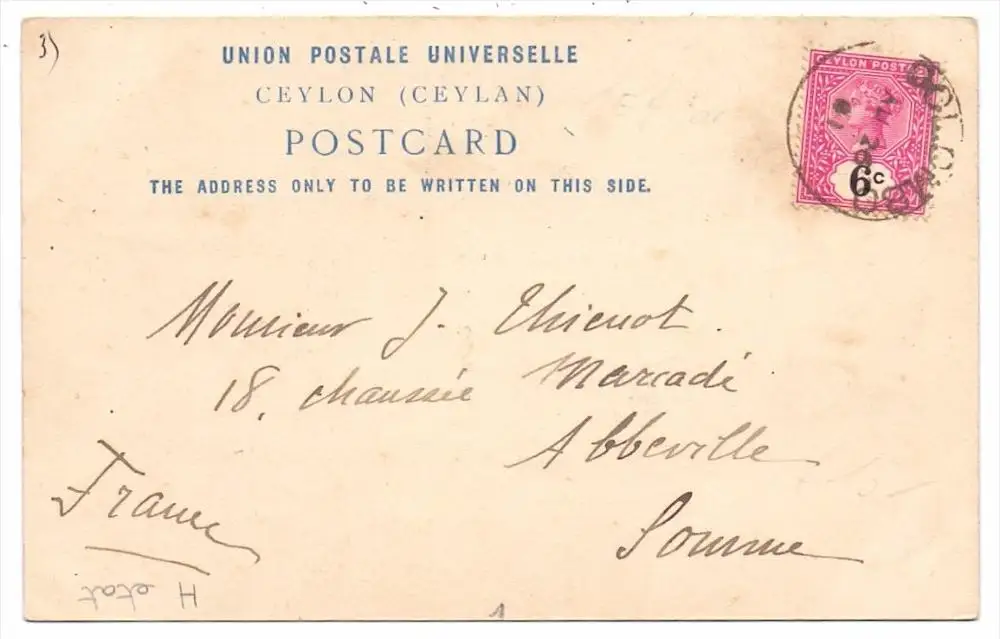 3)
UNION POSTALE UNIVERSELLE
CEYLON (CEYLAN)
POSTCARD
THE ADDRESS ONLY TO BE WRITTEN ON THIS SIDE.
CEYLON POSTAGE
6c
Monsieur J. Thienot.
18, chaussée Marcadé
Abbeville
Somme
France
H etat
1